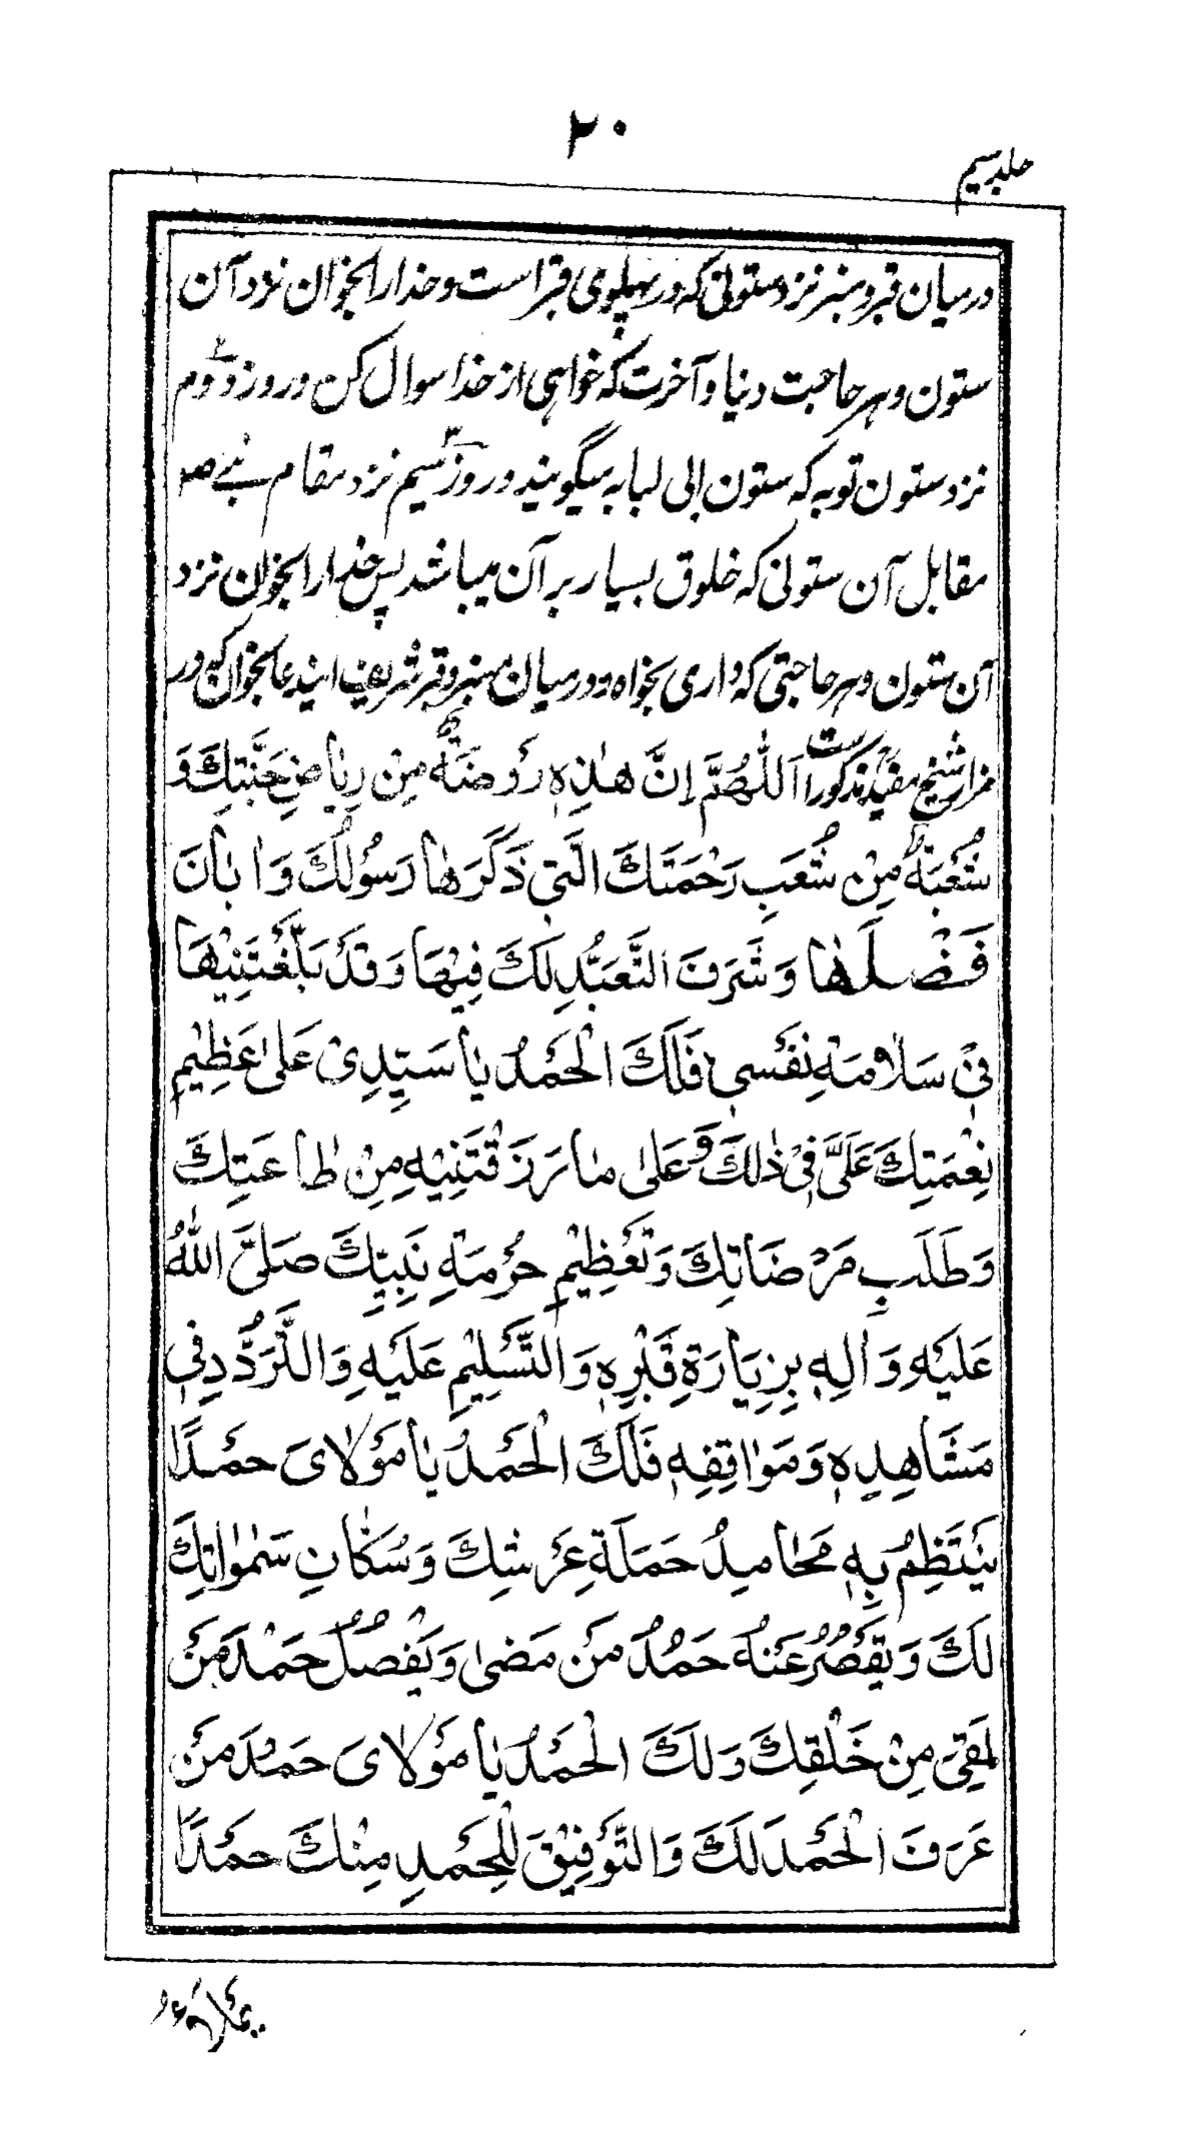 ۲۰
جلد سیم
درمیان قبر و منبر نزد ستونی که در پهلوی قبر است و خدا را بخوان نزد آن
ستون و هر حاجت دنیا و آخرت که خواهی از خدا سوال کن و روز دوم
نزد ستون توبه که ستون ابی لبابه میگویند و روز سیم نزد مقام نبی ص
مقابل آن ستونی که خلوق بسیار بر آن میباشد پس خدا را بخوان نزد
آن ستون و هر حاجتی که داری بخواه و درمیان منبر و قبر شریف ایندعا بخوان که در
مزار شیخ مفید مذکور است اَللّٰهُمَّ اِنَّ هٰذِهٖ رَوْضَةٌ مِنْ رِيٰاضِ جَنَّتِكَ وَ
شُعْبَةٌ مِنْ شُعَبِ رَحْمَتِكَ الَّتِي ذَكَرَهٰا رَسُولُكَ وَ اَبٰانَ
فَضْلَهٰا وَ شَرَفَ التَّعَبُّدِ لَكَ فِيْهَا وَ قَدْ بَلَّغْتَنِيْهَا
فِيْ سَلٰامَةِ نَفْسِي فَلَكَ الْحَمْدُ يٰا سَيِّدِيْ عَلىٰ عَظِيْمِ
نِعْمَتِكَ عَلَيَّ فِيْ ذٰلِكَ وَ عَلىٰ مٰا رَزَقْتَنِيْهِ مِنْ طٰاعَتِكَ
وَ طَلَبِ مَرْضَاتِكَ وَ تَعْظِيْمِ حُرْمَةِ نَبِيِّكَ صَلَّى اللّٰهُ
عَلَيْهِ وَ اٰلِهٖ بِزِيَارَةِ قَبْرِهٖ وَ التَّسْلِيْمِ عَلَيْهِ وَ التَّرَدُّدِ فِيْ
مَشَاهِدِهٖ وَ مَوٰاقِفِهٖ فَلَكَ الْحَمْدُ يٰا مَوْلٰايَ حَمْدًا
يَنْتَظِمُ بِهٖ مَحٰامِدُ حَمَلَةِ عَرْشِكَ وَ سُكّٰانِ سَمٰوٰاتِكَ
لَكَ وَ يَقْصُرُ عَنْهُ حَمْدُ مَنْ مَضىٰ وَ يَفْضُلُ حَمْدَ مَنْ
بَقِيَ مِنْ خَلْقِكَ وَ لَكَ الْحَمْدُ يٰا مَوْلٰايَ حَمْدَ مَنْ
عَرَفَ الْحَمْدَ لَكَ وَ التَّوْفِيْقَ لِلْحَمْدِ مِنْكَ حَمْدًا
يملاء